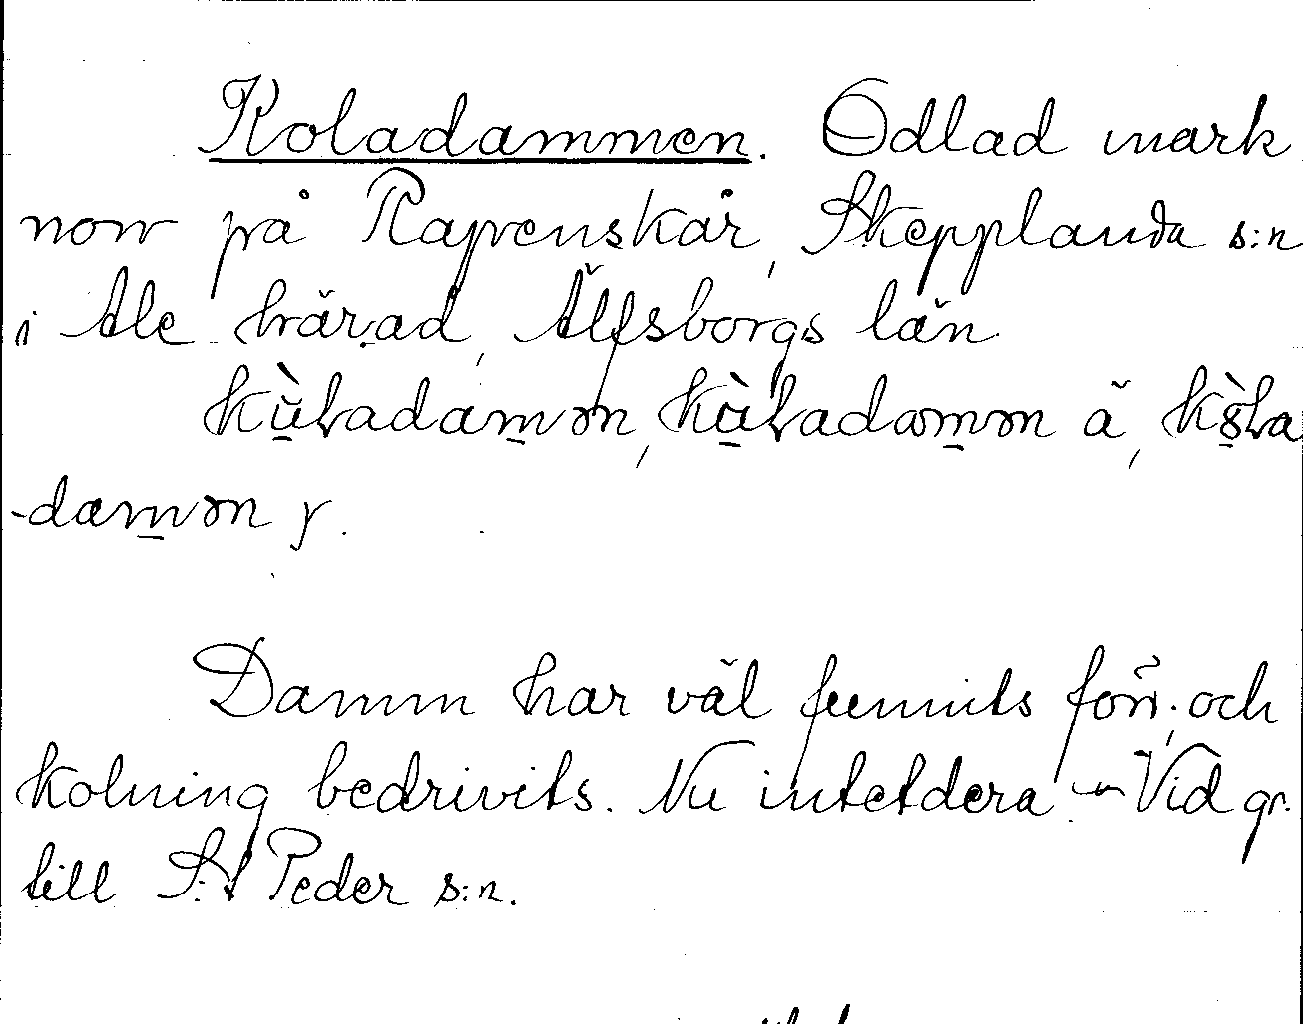 Koladammen. Odlad mark
norr på Rapenskår, Skepplanda s:n
i Ale härad, Älfsborgs län.
kùladamən, kùladamən ä, kòla
-damən y.
Damm har väl funnits förr, och
kolning bedrivits. Nu intetdera – Vid gr.
till St Peder s:n.